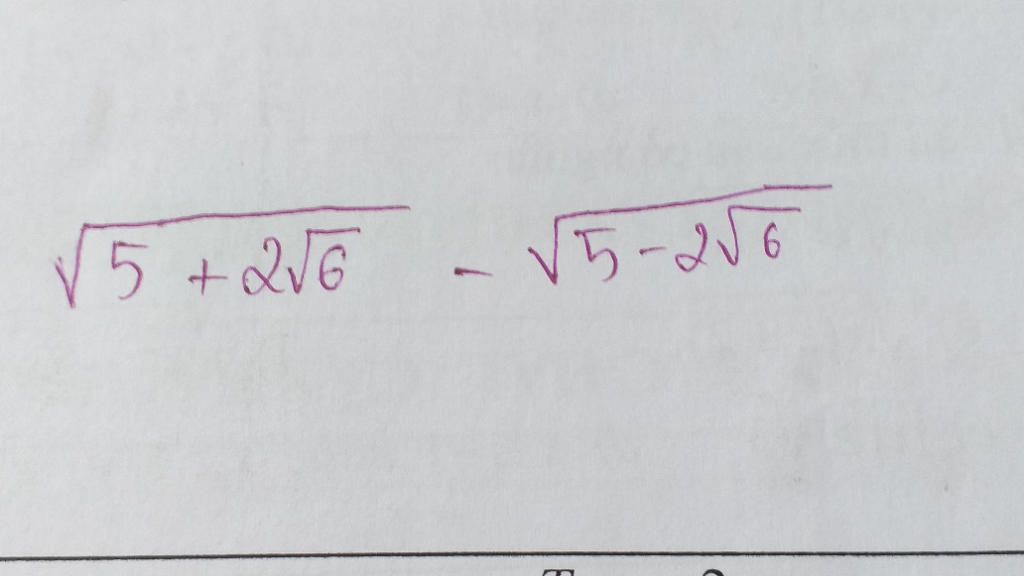 √(5 + 2√6) - √(5 - 2√6)